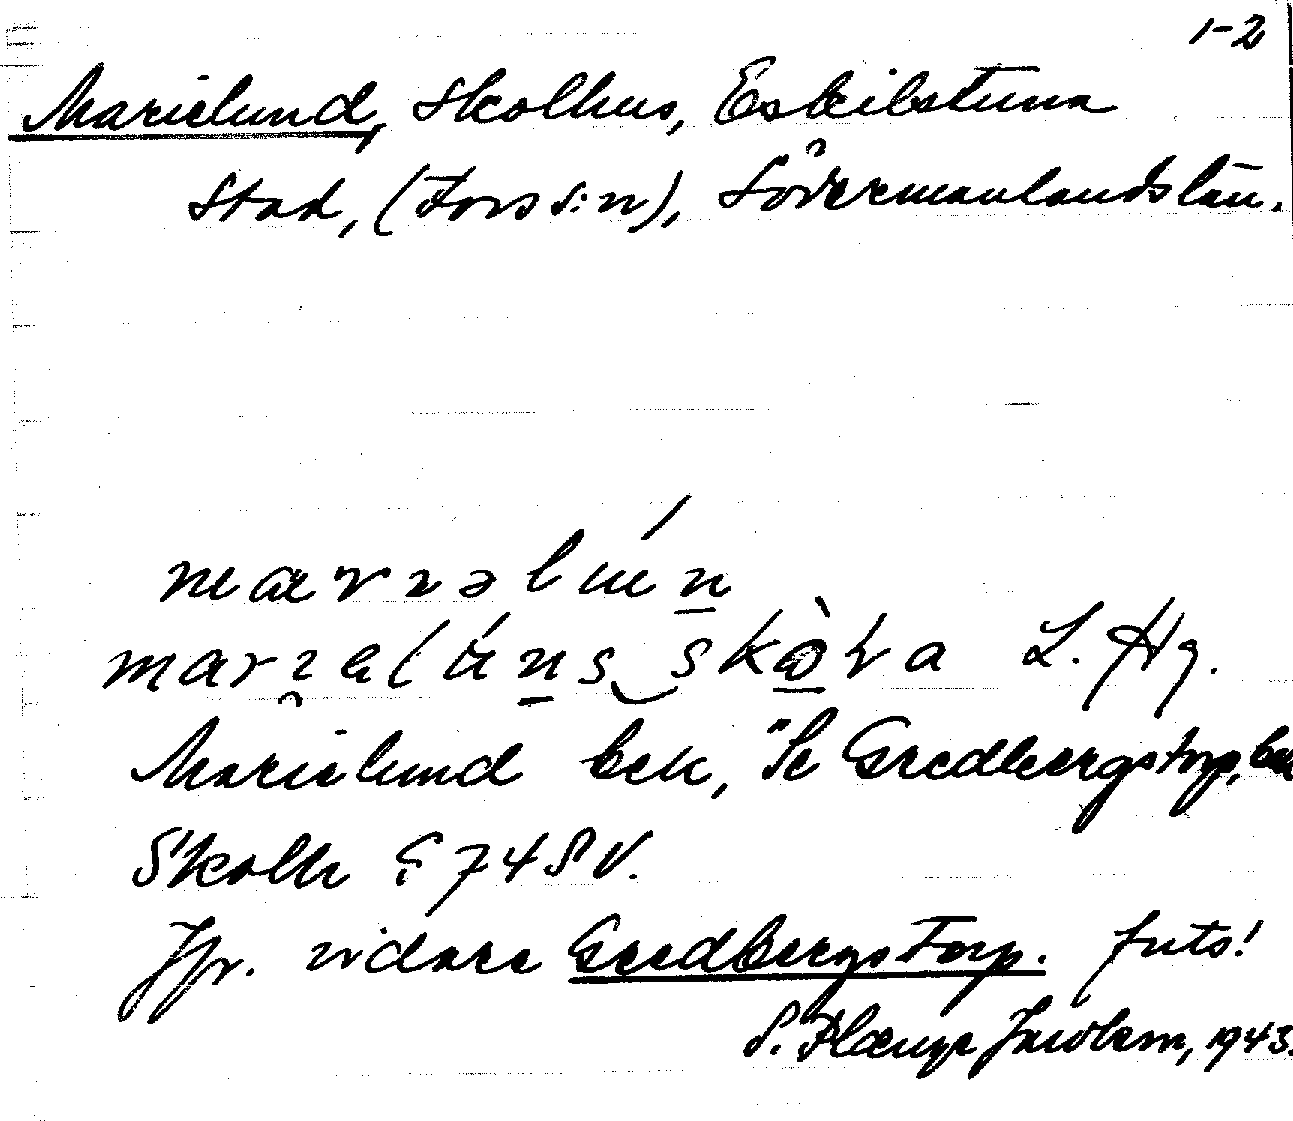 1-2
Marielund, Skolhus, Eskilstuna
Stad, (Fors s:n), Södermanlands län.
marɩəlún
marɩelúns skòla L. Hg.
Marielund bek, Se Gredbergstorp,
Skolh G 74 SV.
Jfr. vidare Gredbergstorp. futs!
S. Jacobsen, 1943.